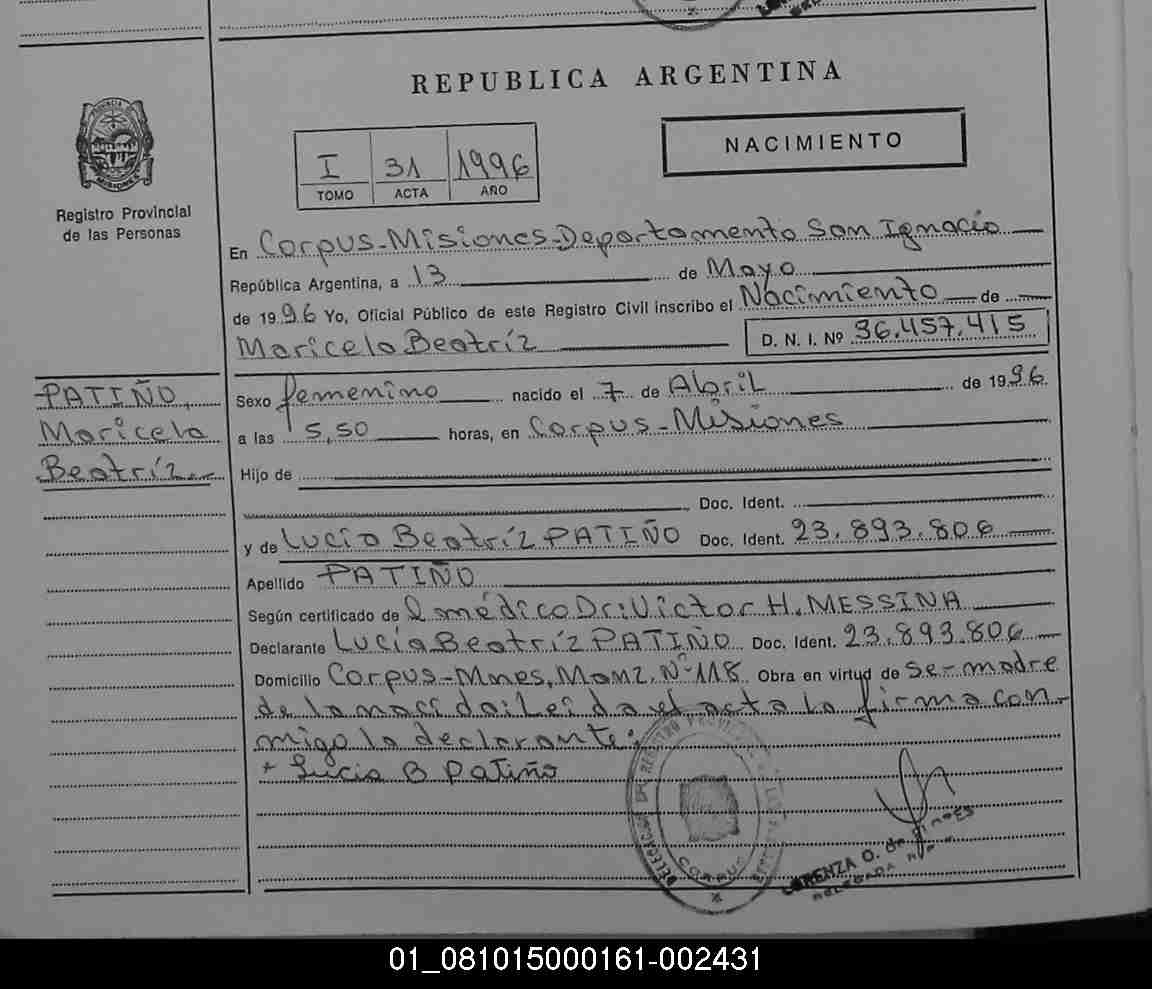 REPUBLICA ARGENTINA
NACIMIENTO
I 31 1996
TOMO ACTA AÑO
PROVINCIA DE
MISIONES
Registro Provincial
de las Personas
En Corpus-Misiones-Departamento San Ignacio
República Argentina, a 13 de Mayo
de 1996 Yo, Oficial Público de este Registro Civil inscribo el Nacimiento de
Maricela Beatríz D. N. I. Nº 36.457.415
PATIÑO,
Maricela
Beatríz
Sexo femenino nacido el 7 de Abril de 1996.
a las 5,50 horas, en Corpus-Misiones
Hijo de
Doc. Ident.
y de Lucía Beatríz PATIÑO Doc. Ident. 23.893.806
Apellido PATIÑO
Según certificado de el médico Dr: Victor H. MESSINA
Declarante Lucía Beatríz PATIÑO Doc. Ident. 23.893.806
Domicilio Corpus-Mnes, Manz. Nº 118 Obra en virtud de se-madre
de la nacida: Leida el acta la firma con-
migo la declarante:
+ Lucia B Patiño
DELEGACION DEL REGISTRO PROVINCIAL DE LAS PERSONAS
CORPUS
LORENZA O. de
DELEGADA
01_081015000161-002431